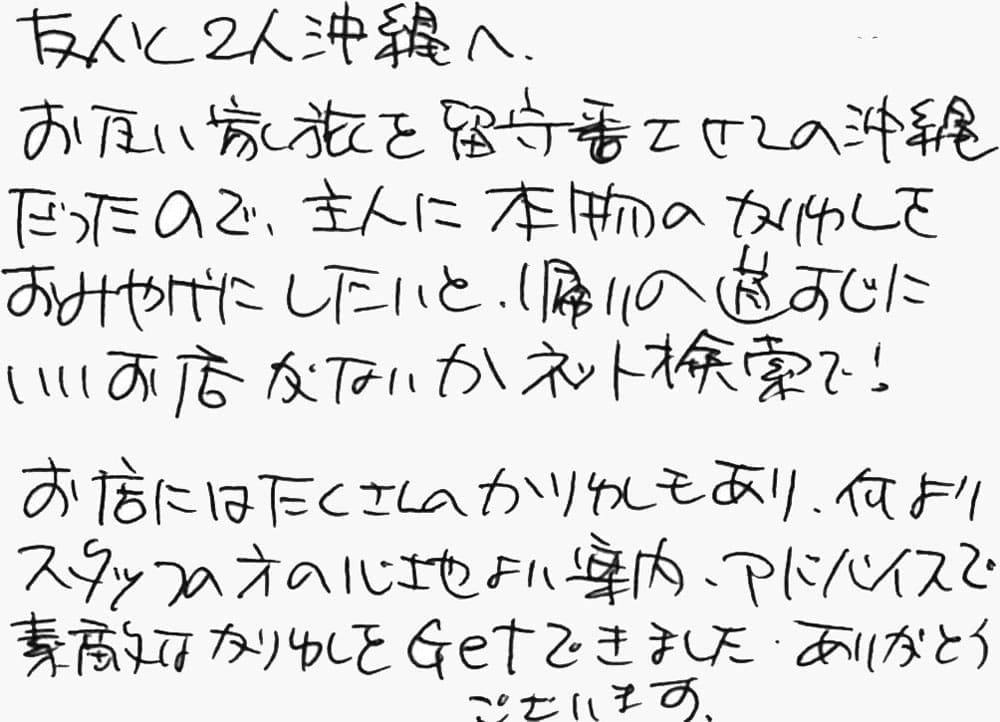 友人と2人沖縄へ.
お互い家族を留守番させての沖縄
だったので、主人に本物のかりゆしを
おみやげにしたいと、帰りの道すじに
いいお店がないかネット検索で!
お店にはたくさんのかりゆしもあり、何より
スタッフの方の心地よい案内、アドバイスで
素敵なかりゆしをGetできました. ありがとう
ございます.